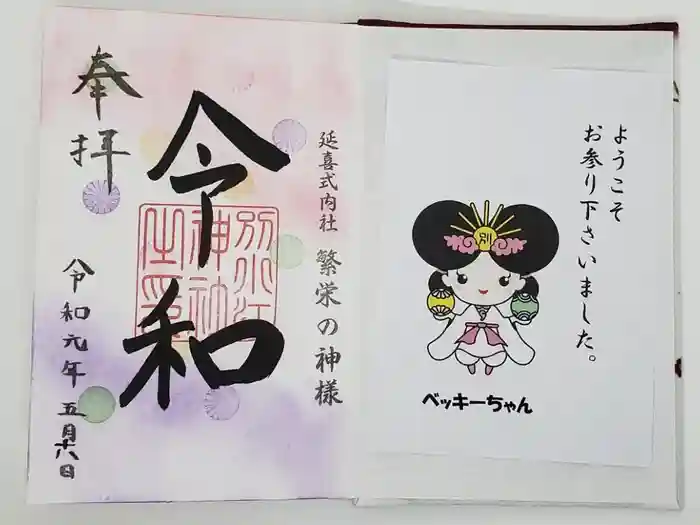 延喜式内社 繁栄の神様
奉拝
令和
別小江
神社
之印
令和元年 五月十六日
ようこそ
お参り下さいました。
別
ベッキーちゃん